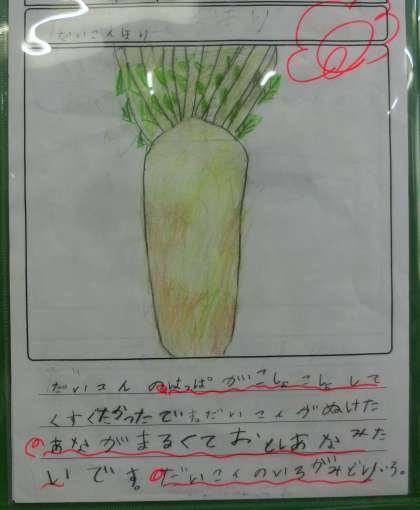 だいこんほり
だいこんのはっぱがこしょこしょして
くすぐたかったです。だいこんがぬけた
あながまるくておとしあなみた
いです。だいこんのいろがみどりいろ。